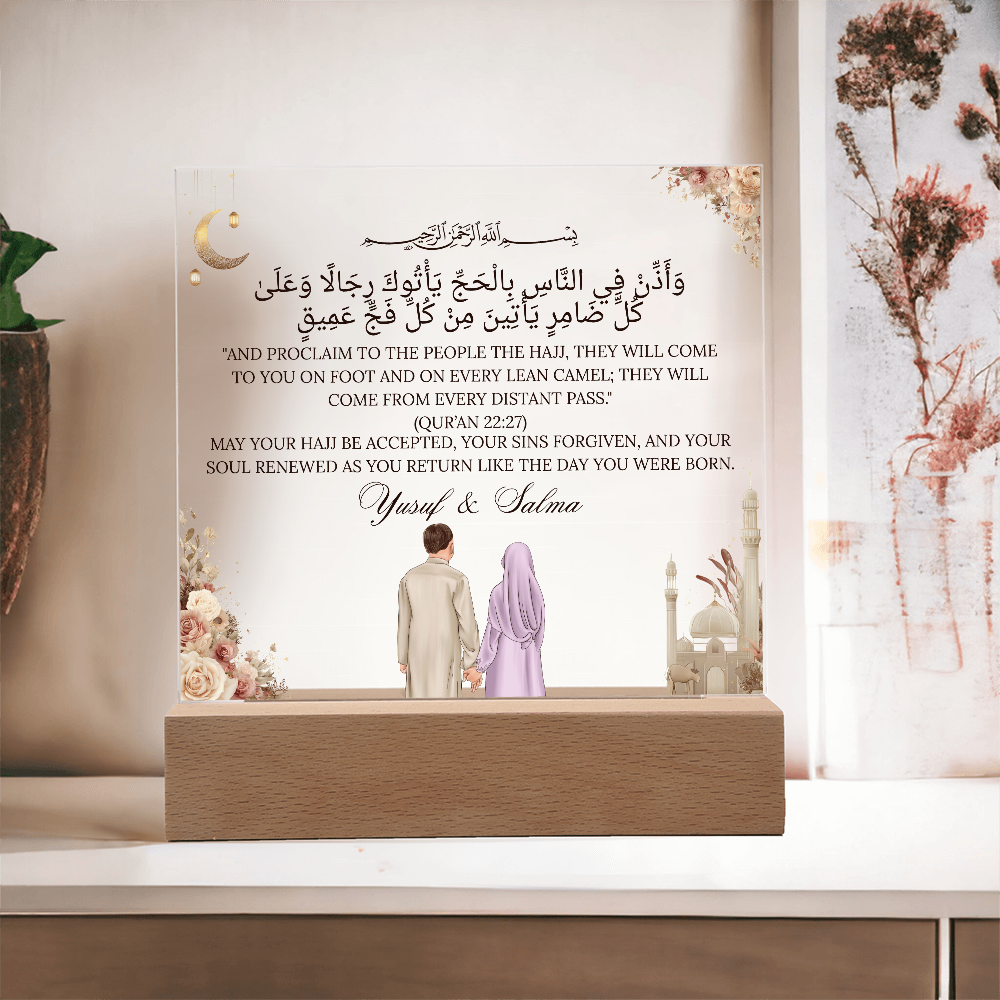 بِسْمِ ٱللَّهِ ٱلرَّحْمَٰنِ ٱلرَّحِيمِ
وَأَذِّنْ فِي النَّاسِ بِالْحَجِّ يَأْتُوكَ رِجَالًا وَعَلَىٰ
كُلِّ ضَامِرٍ يَأْتِينَ مِنْ كُلِّ فَجٍّ عَمِيقٍ
"AND PROCLAIM TO THE PEOPLE THE HAJJ, THEY WILL COME
TO YOU ON FOOT AND ON EVERY LEAN CAMEL; THEY WILL
COME FROM EVERY DISTANT PASS."
(QUR’AN 22:27)
MAY YOUR HAJJ BE ACCEPTED, YOUR SINS FORGIVEN, AND YOUR
SOUL RENEWED AS YOU RETURN LIKE THE DAY YOU WERE BORN.
Yusuf & Salma